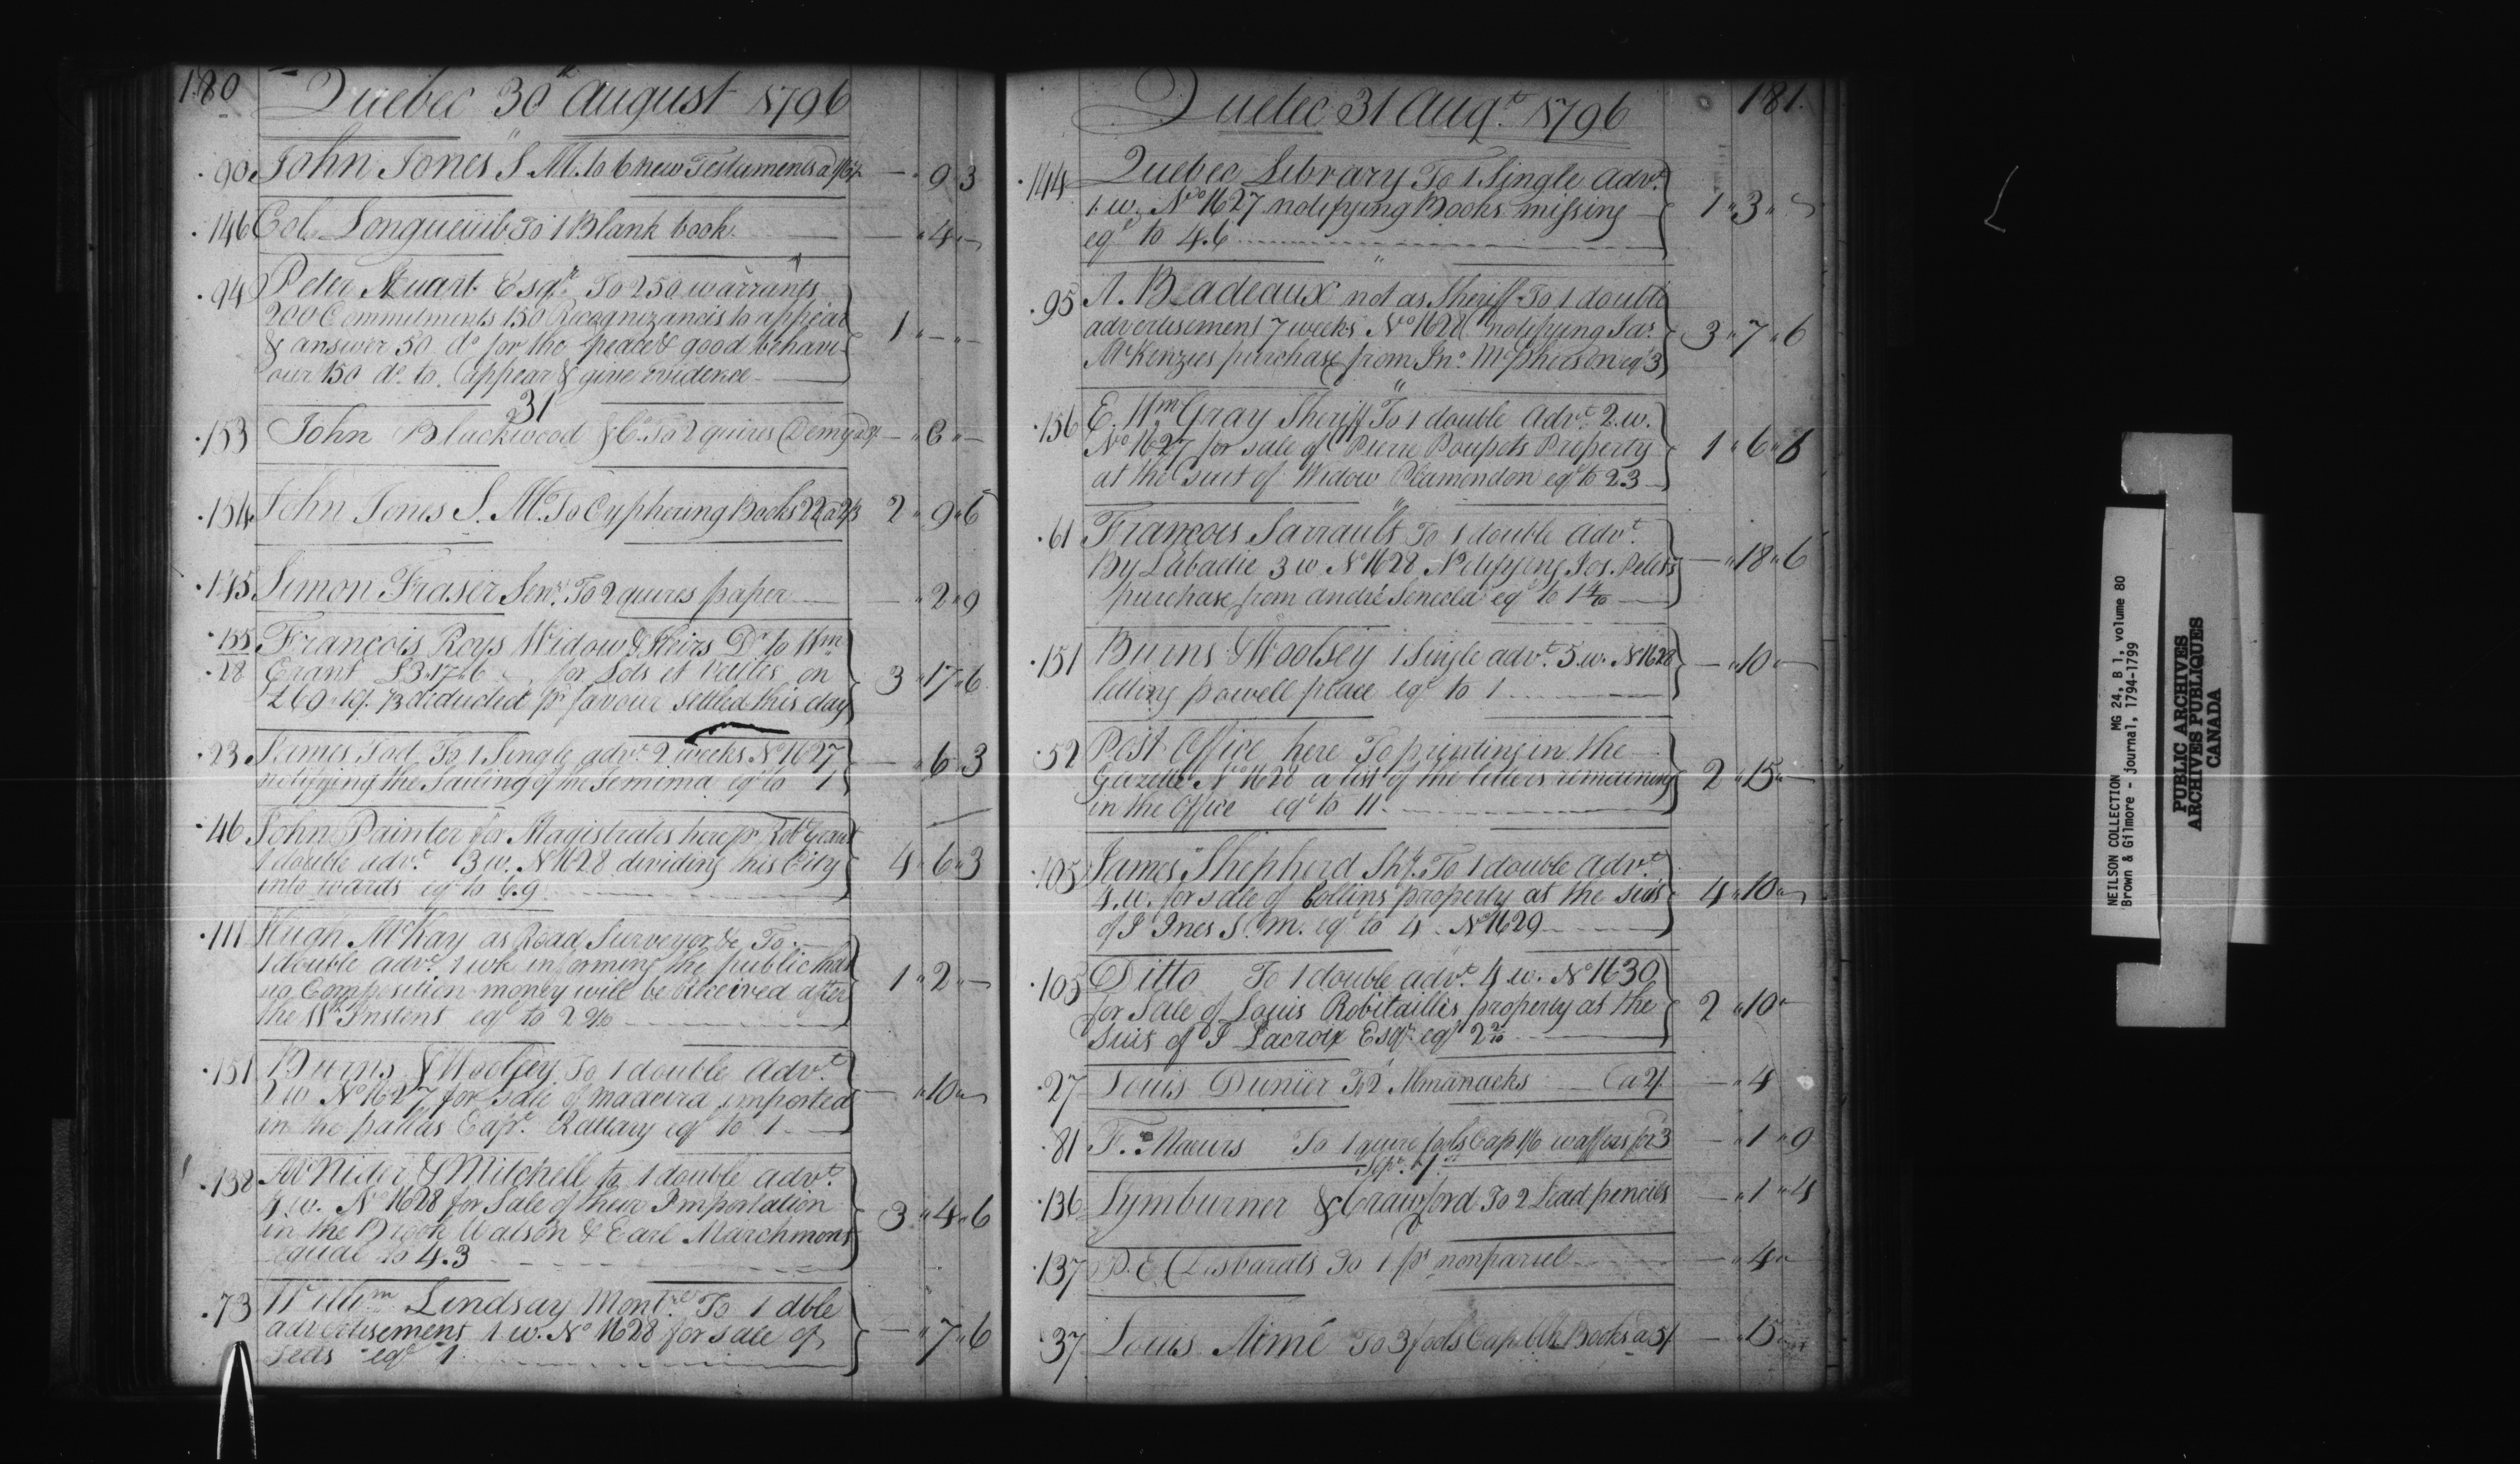 180
Quebec 30th August 1796
90 John Jones S. M. to 6 new Testaments a 1/6½ — " 9 " 3
146 Col. Longueuil To 1 Blank book — " 4 " —
94 Peter Stuart Esqr. To 250 warrants
200 Commitments 150 Recognizances to appear
& answer 50 do for the peace & good behavi-
our 150 do. to appear & give evidence 1 " — " —
31
153 John Blackwood & Co. To 2 quires Demy
154 John Jones S. M. To Cyphering Books 22 a 2/3 2 " 9 " 6
145 Simon Fraser Senr. To 2 quires paper — " 2 " 9
155 François Roys Widow & Heirs Dr. to Wm
28 Grant £3.17.6 for Lods et Ventes on
deducted pr favour settled this day 3 " 17 " 6
23 James Tod To 1 Single advt. 2 weeks No 1627
notifying the Sailing of the Jemima eql to 1 — " 6 " 3
46 John Painter for Magistrates here pr.
1 double advt. 13 w. No 1628 dividing this City
into wards eql to 6.9 4 " 6 " 3
111 Hugh McKay as Road Surveyor &c To
1 double advt. 1 wk informing the public that
no Composition money will be Received after
the Instent eql to 2 1 " 2 " —
151 Burns & Woolsey To 1 double Advt.
2 w No 1627 for sale of madeira imported
in the pallas Capt. Rattary eql to 1 — " 10 " —
138 McNider & Mitchell to 1 double advt.
4 w. No 1628 for Sale of their Importation
in the Brook Watson & Earl Marchmont
equal to 4.3 3 " 4 " 6
73 Willm Lindsay Montrl To 1 dble
advertisement 1 w. No 1628 for sale of
eql 1 — " 7 " 6
181.
Quebec 31 Augt. 1796
144 Quebec Library To 1 Single advt.
1 w. No 1627 notifying Books missing
eql to 4.6 1 " 3 " —
95 A. Badeaux not as Sheriff To 1 double
advertisement 7 weeks No 1628 notifying Jas.
McKenzies purchase from Jno. McPherson eql 3 3 " 7 " 6
156 E. Wm Gray Sheriff To 1 double Advt. 2 w.
No 1627 for sale of Pierre Poupets Property
at the suit of Widow Plamondon eql to 2.3 1 " 6 " 6
61 François Sarrault To 1 double Advt.
By Labadie 3 w No 1628 Notifying Jos.
purchase from andré Senecal eql to 1 4/10 — " 18 " 6
151 Burns & Woolsey 1 Single advt. 5 w. No 1628
letting powell place eql to 1 — " 10 " —
52 Post Office here To printing in the
Gazette No 1628 a list of the letters remaining
in the Office eql to 11 2 " 15 " —
105 James Shepherd Shf. To 1 double Advt.
4 w. for sale of Collins property at the suit
of J Ines S. m. eql to 4 No 1629 4 " 10 " —
105 Ditto To 1 double advt. 4 w. No 1630
for Sale of Louis Robitailles property at the
suit of J Lacroix Esqr. eql 2 2/10 2 " 10 " —
27 Louis Dunier To 2 Almanacks a 2/ — " 4
81 To 1 quire fools Cap 1/6 waffers for 3 — " 1 " 9
Sepr. 1st
136 Lymburner & Crawford To 2 Lead pencils — " 1 " 4
137 P. E. Desbarats To 1 pr nonpariel — " 4 " —
37 Louis Aimé To 3 fools Cap blk Books a 5/ — " 15 " —
NEILSON COLLECTION MG 24, B 1, volume 80
Brown & Gilmore - journal, 1794-1799
PUBLIC ARCHIVES
ARCHIVES PUBLIQUES
CANADA